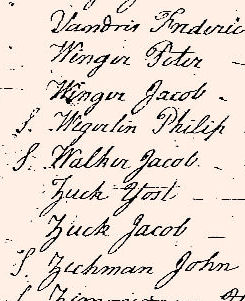 Vandris Frederic
Winger Peter
Winger Jacob
S. Wegerlin Philip
S. Walker Jacob
Zuck Yost
Zuck Jacob
S. Zechman John